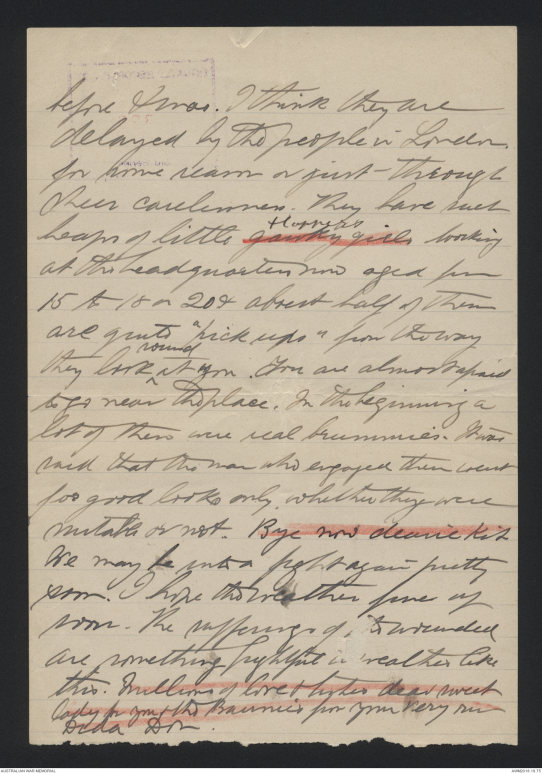 before Xmas. I think they are
delayed by the people in London
for some reason or just through
sheer carelessness. They have such
heaps of little flappers working
at the headquarters now aged from
15 to 18 or 20 & about half of them
are quite "pick ups" from the way
they look round at you. You are almost afraid
to go near the place. In the beginning a
lot of them were real brummies. It was
said that the man who engaged them went
for good looks only, whether they were
suitable or not. Bye now dearie Kit
We may be into a fight again pretty
soon. I hope the weather fines up
soon. The sufferings of wounded
are something frightful in weather like
this. Millions of love & kisses dear sweet
lady for you & the Bairnies from your very own
Dida Don.
AUSTRALIAN WAR MEMORIAL